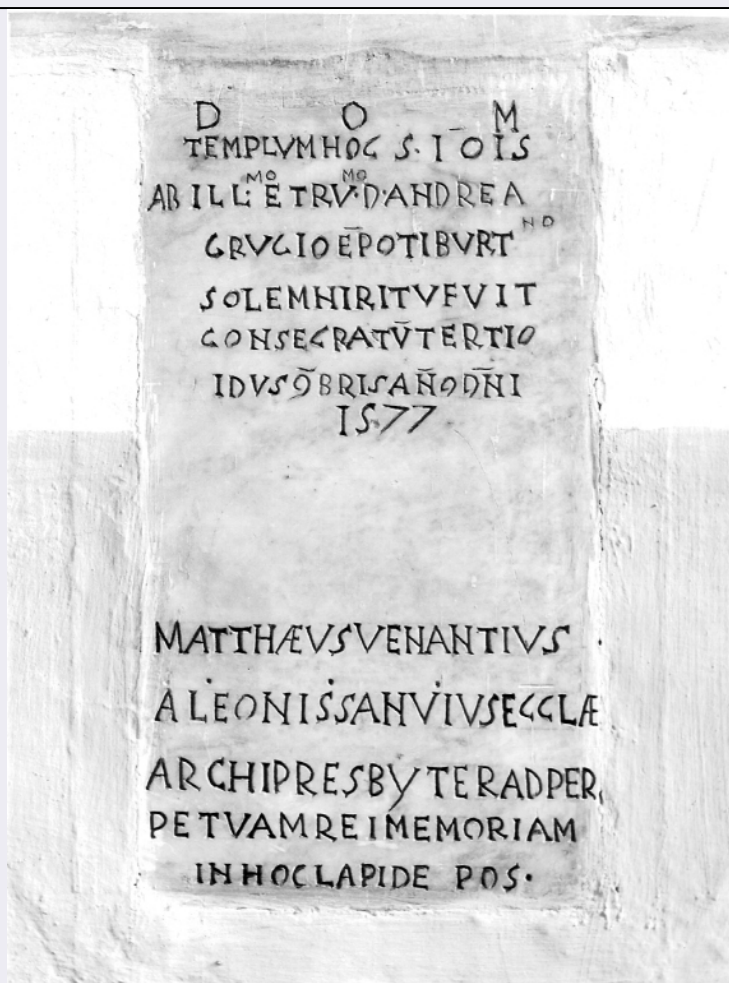 D O M
TEMPLVM HOC S. IŌIS
AB ILL:MO ET RV.MO D. ANDREA
CRVCIO ĒPO TIBVRTND
SOLEMNI RITV FVIT
CONSECRATV̄ TERTIO
IDVS O̅BRIS AN̄O DN̄I
1577
MATTHÆVS VENANTIVS
A LEONISSA HVIVS ECCLÆ
ARCHIPRESBYTER AD PER
PETVAM REI MEMORIAM
IN HOC LAPIDE POS.